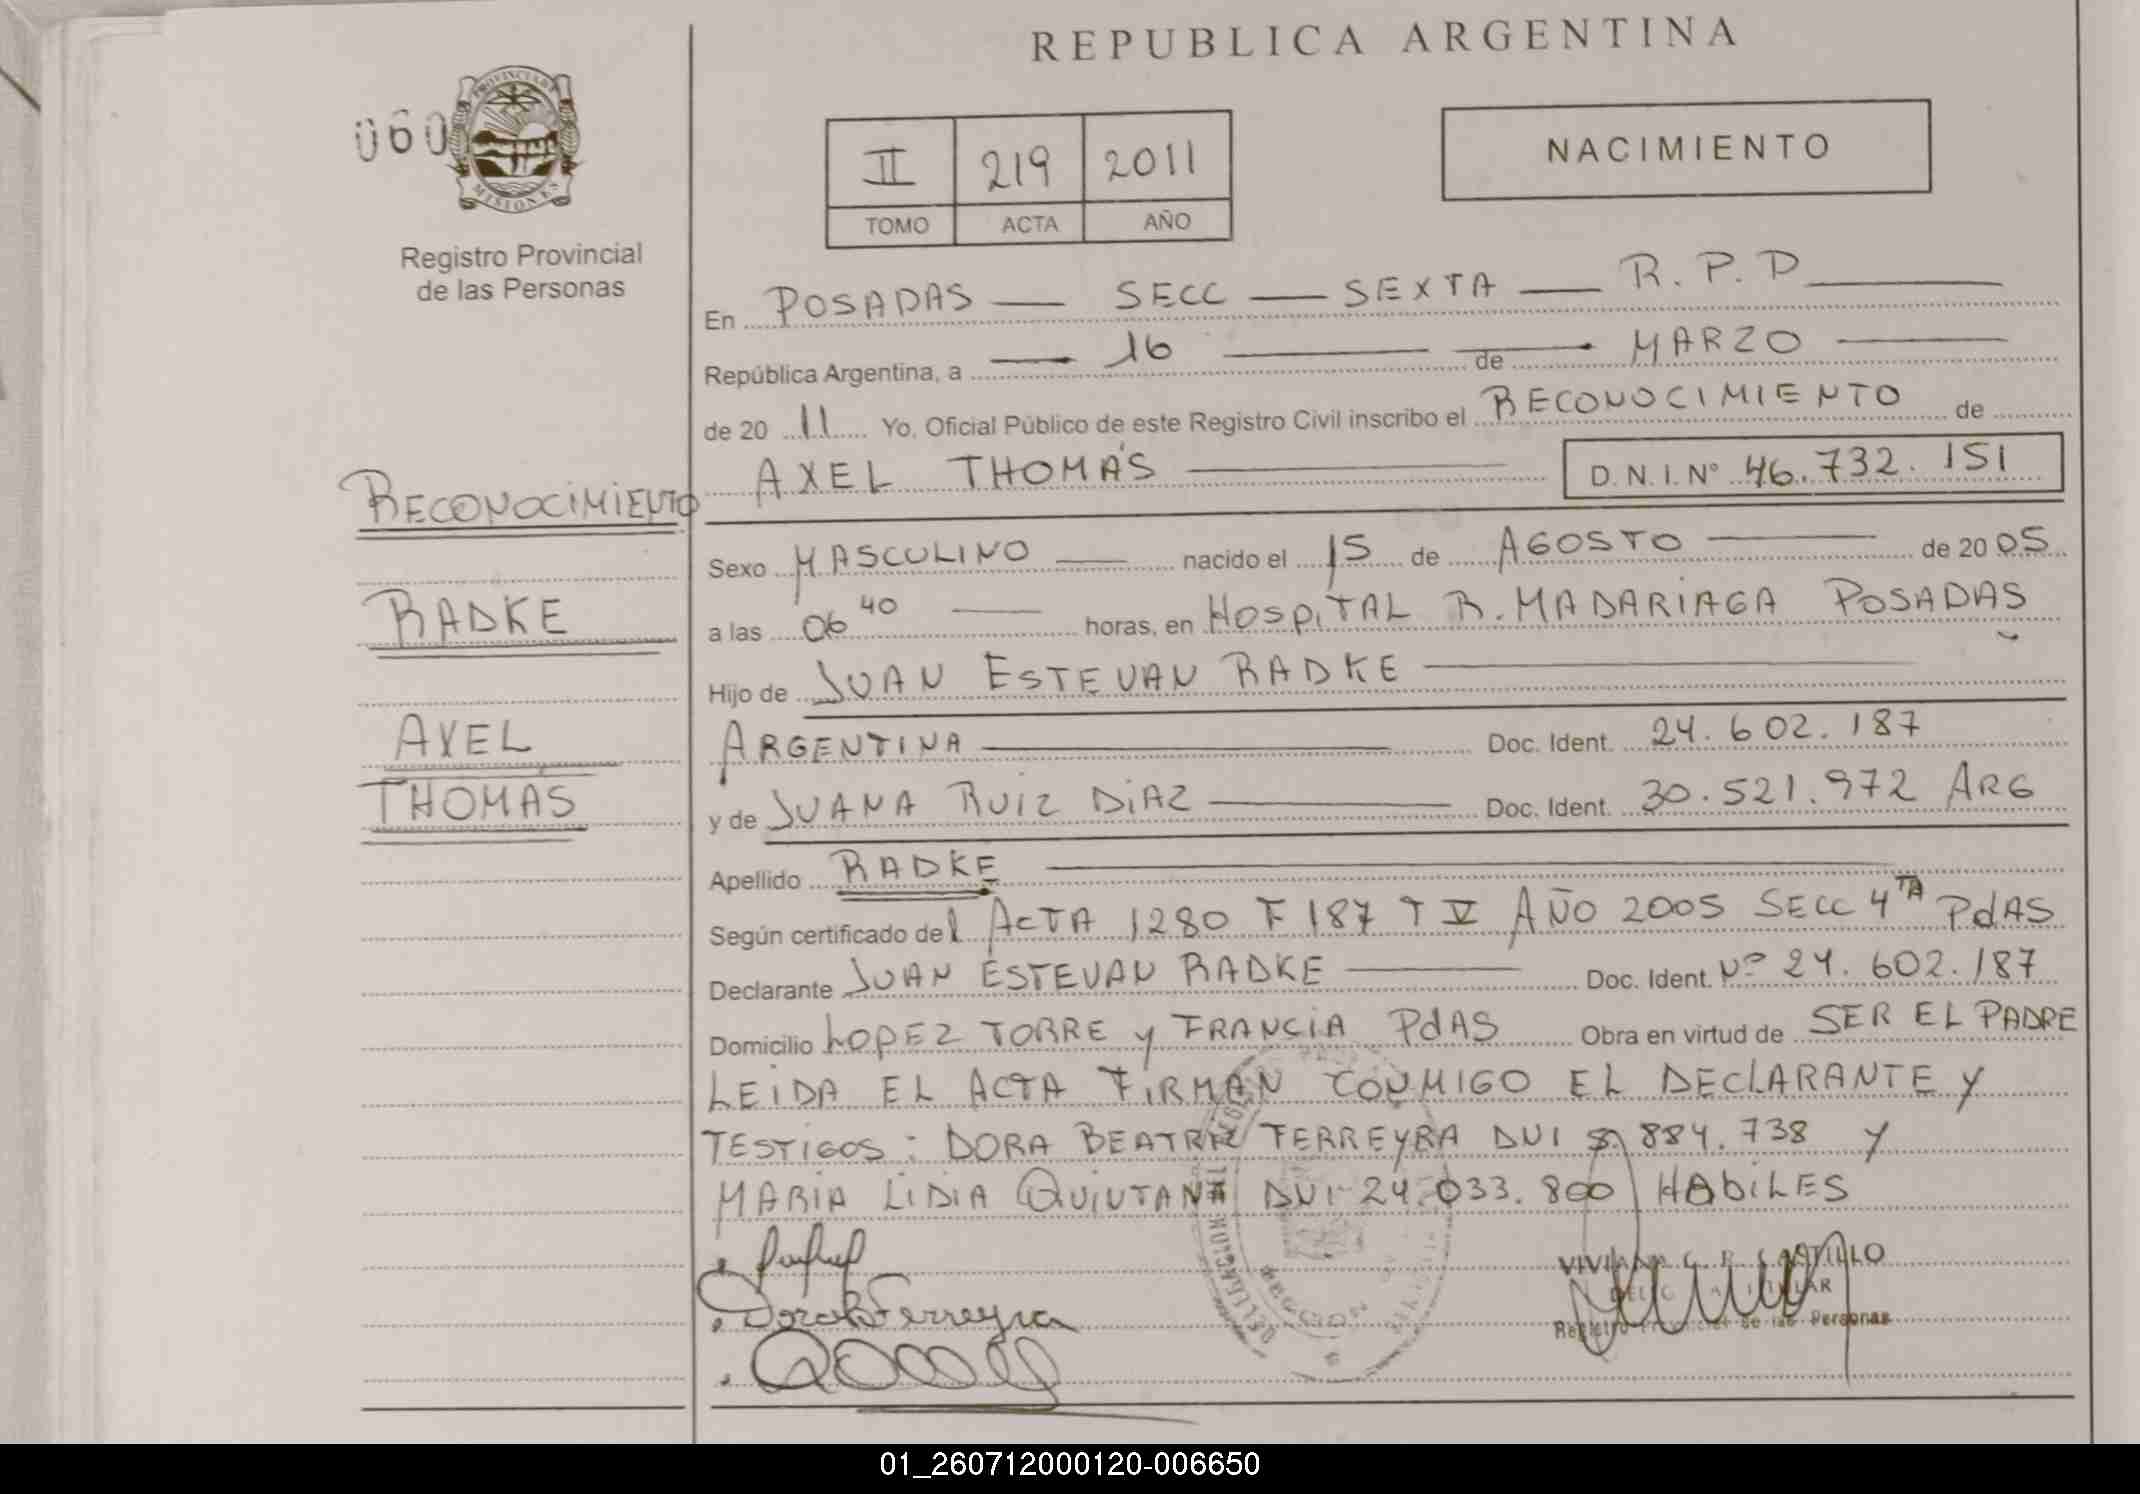 REPUBLICA ARGENTINA
060
PROVINCIA DE
MISIONES
Registro Provincial
de las Personas
II 219 2011
TOMO ACTA AÑO
NACIMIENTO
En POSADAS — SECC — SEXTA — R.P.D
República Argentina, a — 16 — de MARZO —
de 20 11 Yo, Oficial Público de este Registro Civil inscribo el RECONOCIMIENTO de
AXEL THOMÁS — D.N.I.Nº 46.732.151
RECONOCIMIENTO
Sexo MASCULINO — nacido el 15 de AGOSTO — de 20 05
RADKE
a las 06 40 — horas, en HOSPITAL R. MADARIAGA POSADAS
Hijo de JUAN ESTEVAN RADKE —
AXEL
ARGENTINA — Doc. Ident. 24.602.187
THOMÁS
y de JUANA RUIZ DIAZ — Doc. Ident. 30.521.972 ARG
Apellido RADKE —
Según certificado del ACTA 1280 F 187 T V AÑO 2005 SECC 4TA PdAS
Declarante JUAN ESTEVAN RADKE — Doc. Ident. Nº 24.602.187
Domicilio LOPEZ TORRE y FRANCIA PdAS Obra en virtud de SER EL PADRE
LEIDA EL ACTA FIRMAN CONMIGO EL DECLARANTE y
TESTIGOS: DORA BEATRIZ FERREYRA DNI 884.738 y
MARIA LIDIA QUINTANA DNI 24.033.800 HABILES
Dora B Ferreyra
Registro Provincial de las Personas
01_260712000120-006650